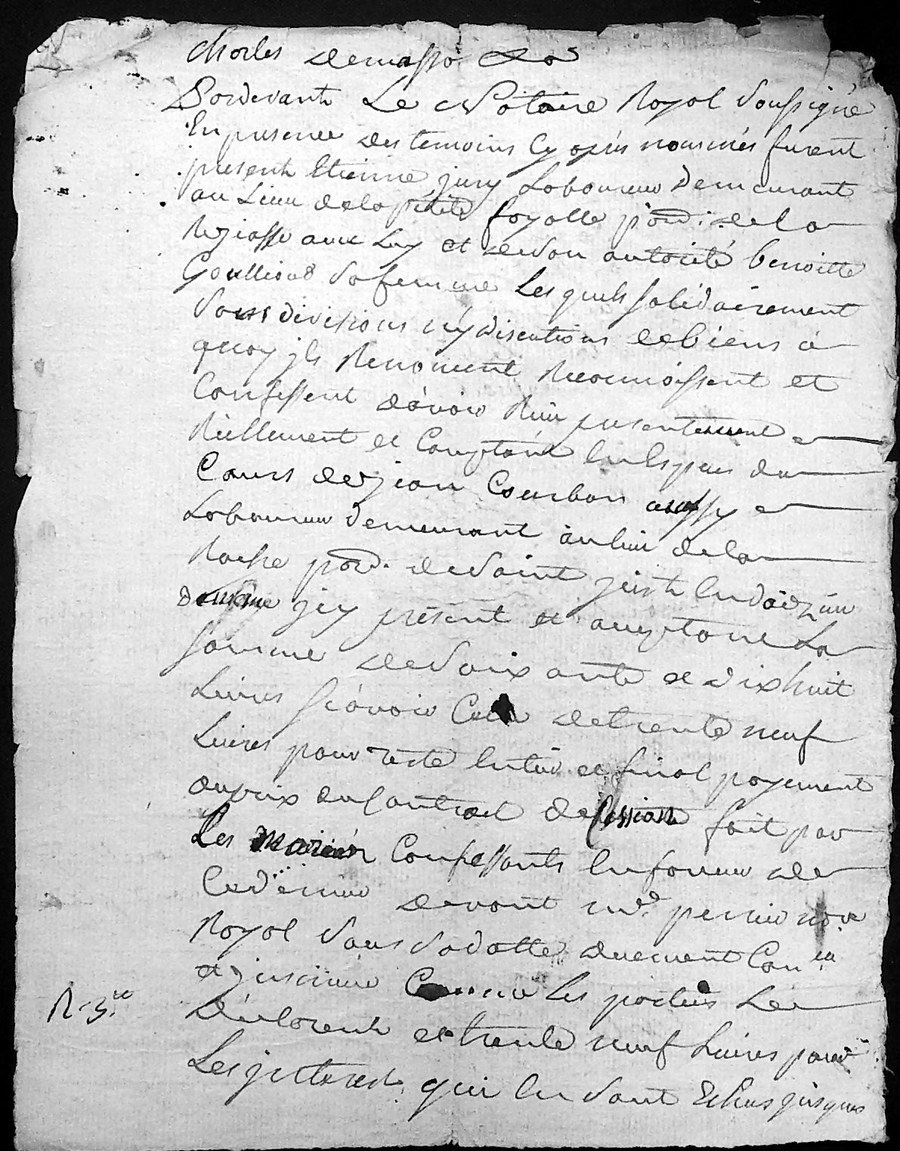 Pardevant Le Notaire Royal Soussigné
En presence des temoins Cy après nommés furent
present Etienne jury Laboureur Demeurant
au Lieu dela petite fayolle parr: de la
avec Luy et de son autorité benoitte
sa femme Lesquels solidairement
Sans divisions ny discutions de biens à
quoy ils Renoncent Reconnoissent et
Confessent d'avoir Reçu presentement
Reellement et Comptant En Espèces du
Cours de jean Courbon aussy
Laboureur Demeurant au lieu dela
Roche parr. de Saint just En
jcy present et acceptant La
somme de Soixante et dixhuit
Livres sçavoir Celle de trente neuf
Livres pour reste Entier et final payement
du prix du Contract de Cession fait par
Les mariés Confessants En faveur de
Ce dernier devant me. perrier nore
Royal Sous Sa datte duement Con.lé
et jnsinué Comme Les parties L'ont
Déclaré et trente neuf Livres pour
Les jnterest qui En sont Echus jusques
R. 3.